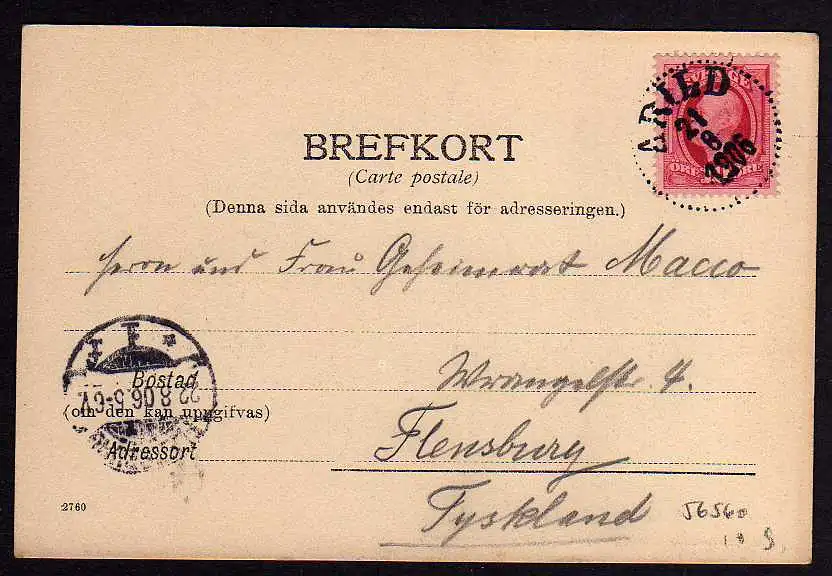 SVERIGE
ARILD
21
8
1906
BREFKORT
(Carte postale)
(Denna sida användes endast för adresseringen.)
Herrn und Frau Geheimrat Macco
Wrangelstr. 4.
Bostad
22.8.06.5-6
(om den kan uppgifvas)
Flensburg
Adressort
2760
Tyskland
56560